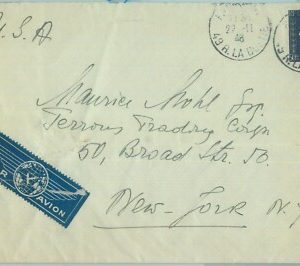 U.S.A
49 R. LA
48
Maurice Mohl Esq.
Ferrous Trading Corpn
50, Broad Str. 50.
New-York N.Y.
AVION